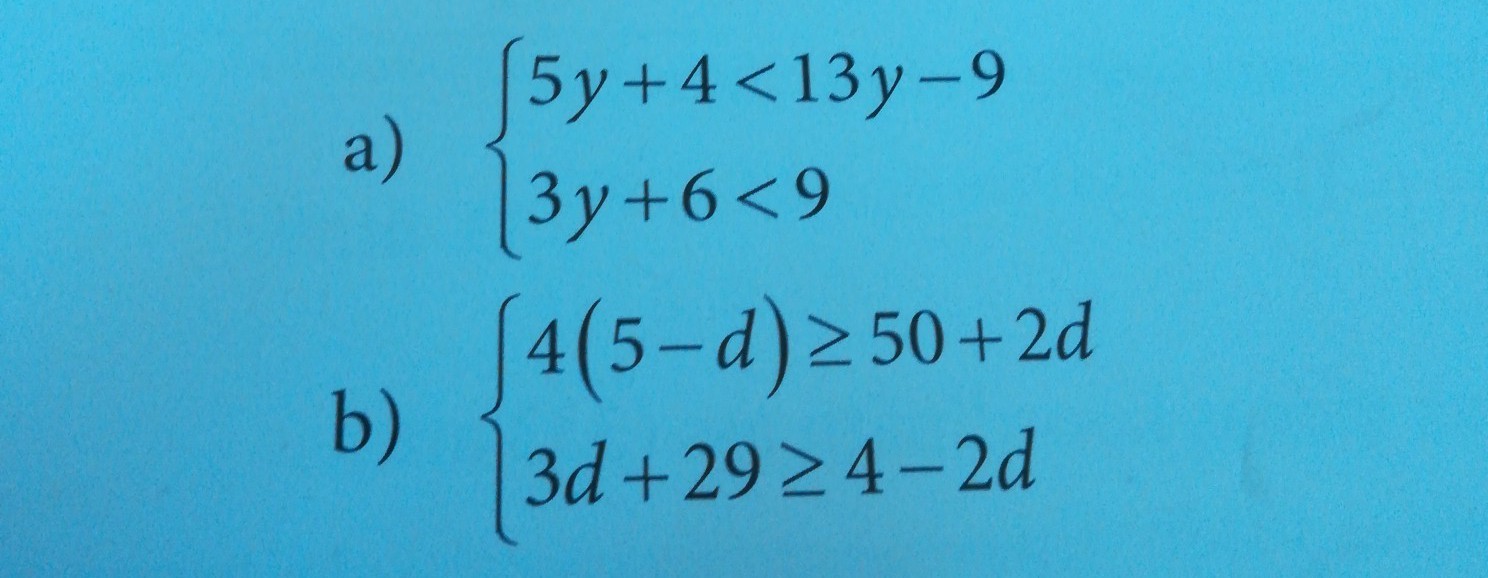 a) 5y+4<13y−9
3y+6<9
b) 4(5−d)≥50+2d
3d+29≥4−2d